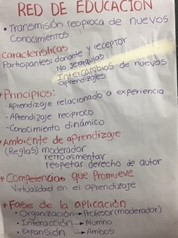 RED DE EDUCACION
• Transmisión recíproca de nuevos
Conocimientos
Características
Participantes: donante y receptor
No jerarquías
Intercambios de nuevos
aprendizajes
• Principios:
- Aprendizaje relacionado a experiencia
- Aprendizaje reciproco
- Conocimiento dinámico
• Ambiente de aprendizaje
(Reglas) moderador
retroalimentar
respetar derecho de autor
• Competencias que Promueve
Virtualidad en el aprendizaje
• Fase de la aplicación
• Organización → Profesor (moderador)
• Interacción → Alumno
• Expansión → Ambos